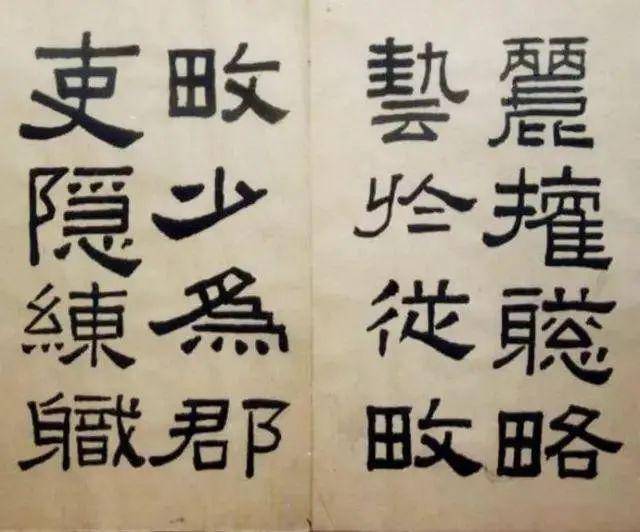 麗權聰略
藝於從畋
畋少為郡
吏隱練職